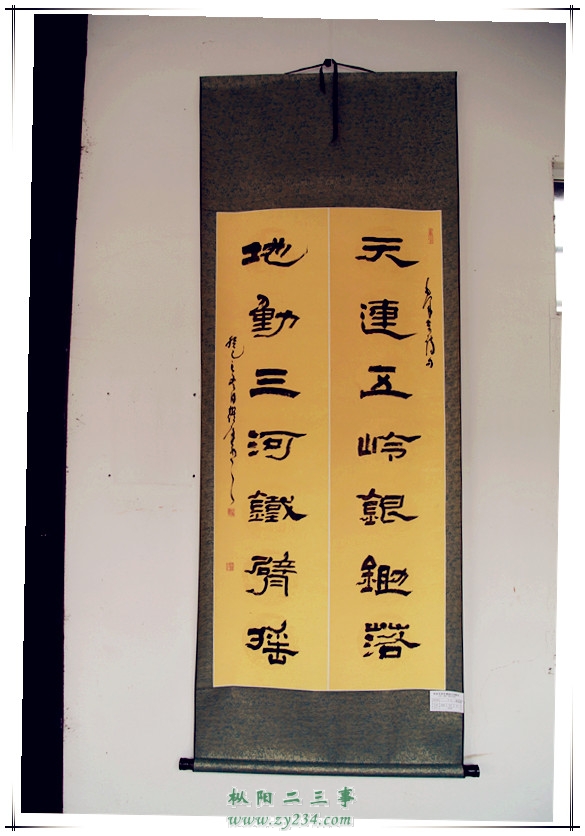 天连五岭銀鋤落
地動三河鐵臂摇
枞阳二三事
www.zy234.com